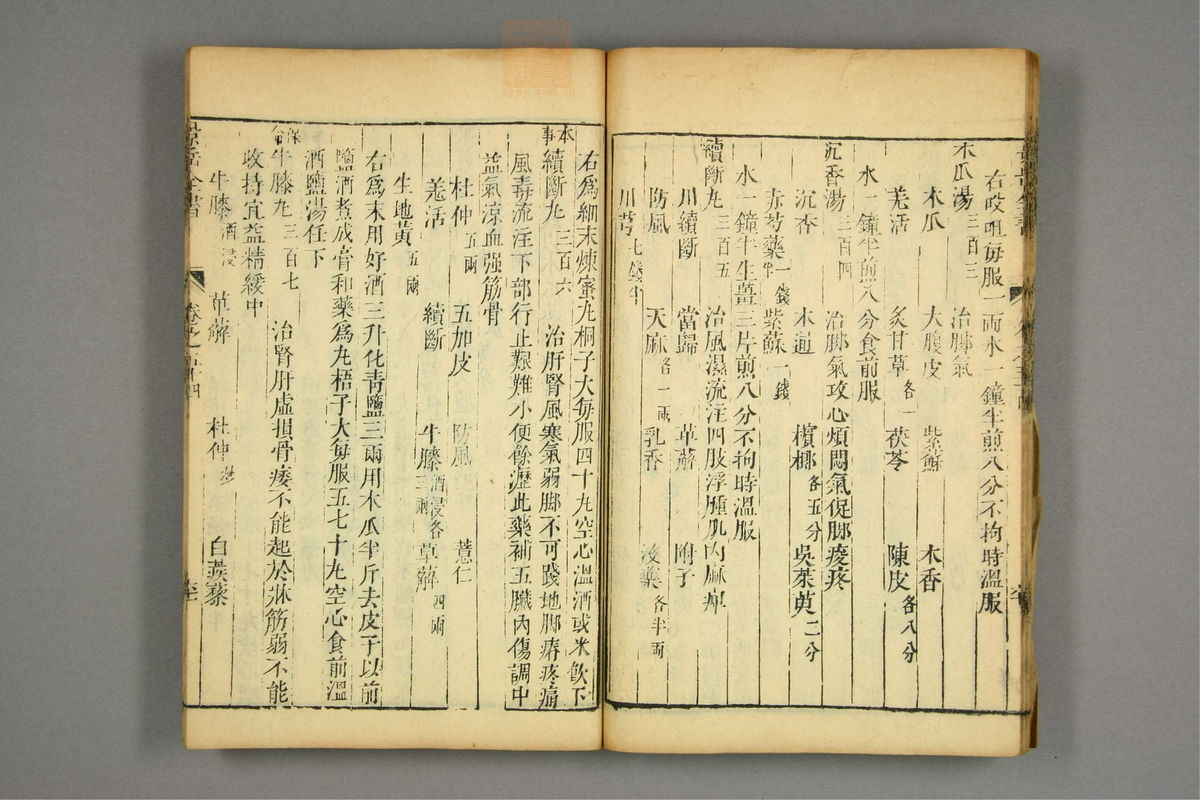 右㕮咀每服一兩水一鐘半煎八分不拘時溫服
木瓜湯三百三 治脚氣
木瓜 大腹皮 紫蘇 木香
羌活 炙甘草各一 茯苓 陳皮各八分
水一鐘半煎八分食前服
沉香湯三百四 治脚氣攻心煩悶氣促脚痠疼
沉香 木通 檳榔各五分 吳茱萸二分
赤芍藥一錢半 紫蘇一錢
水一鐘半生薑三片煎八分不拘時溫服
續斷丸三百五 治風濕流注四肢浮腫肌肉麻痺
川續斷 當歸 萆薢 附子
防風 天麻各一兩 乳香 沒藥各半兩
川芎七錢半
右爲細末煉蜜丸桐子大每服四十丸空心溫酒或米飲下
本事續斷丸三百六 治肝腎風寒氣弱脚不可踐地脚痹疼痛
風毒流注下部行止艱難小便餘瀝此藥補五臟內傷調中
益氣涼血强筋骨
杜仲五兩 五加皮 防風 薏仁
羌活 續斷 牛膝酒浸各三兩 萆薢四兩
生地黃五兩
右爲末用好酒三升化靑鹽三兩用木瓜半斤去皮子以前
鹽酒煮成膏和藥爲丸梧子大每服五七十丸空心食前溫
酒鹽湯任下
保命牛膝丸三百七 治腎肝虛損骨痿不能起於牀筋弱不能
收持宜益精緩中
牛膝酒浸 萆薢 杜仲炒 白蒺藜
景岳全書 卷之五十四